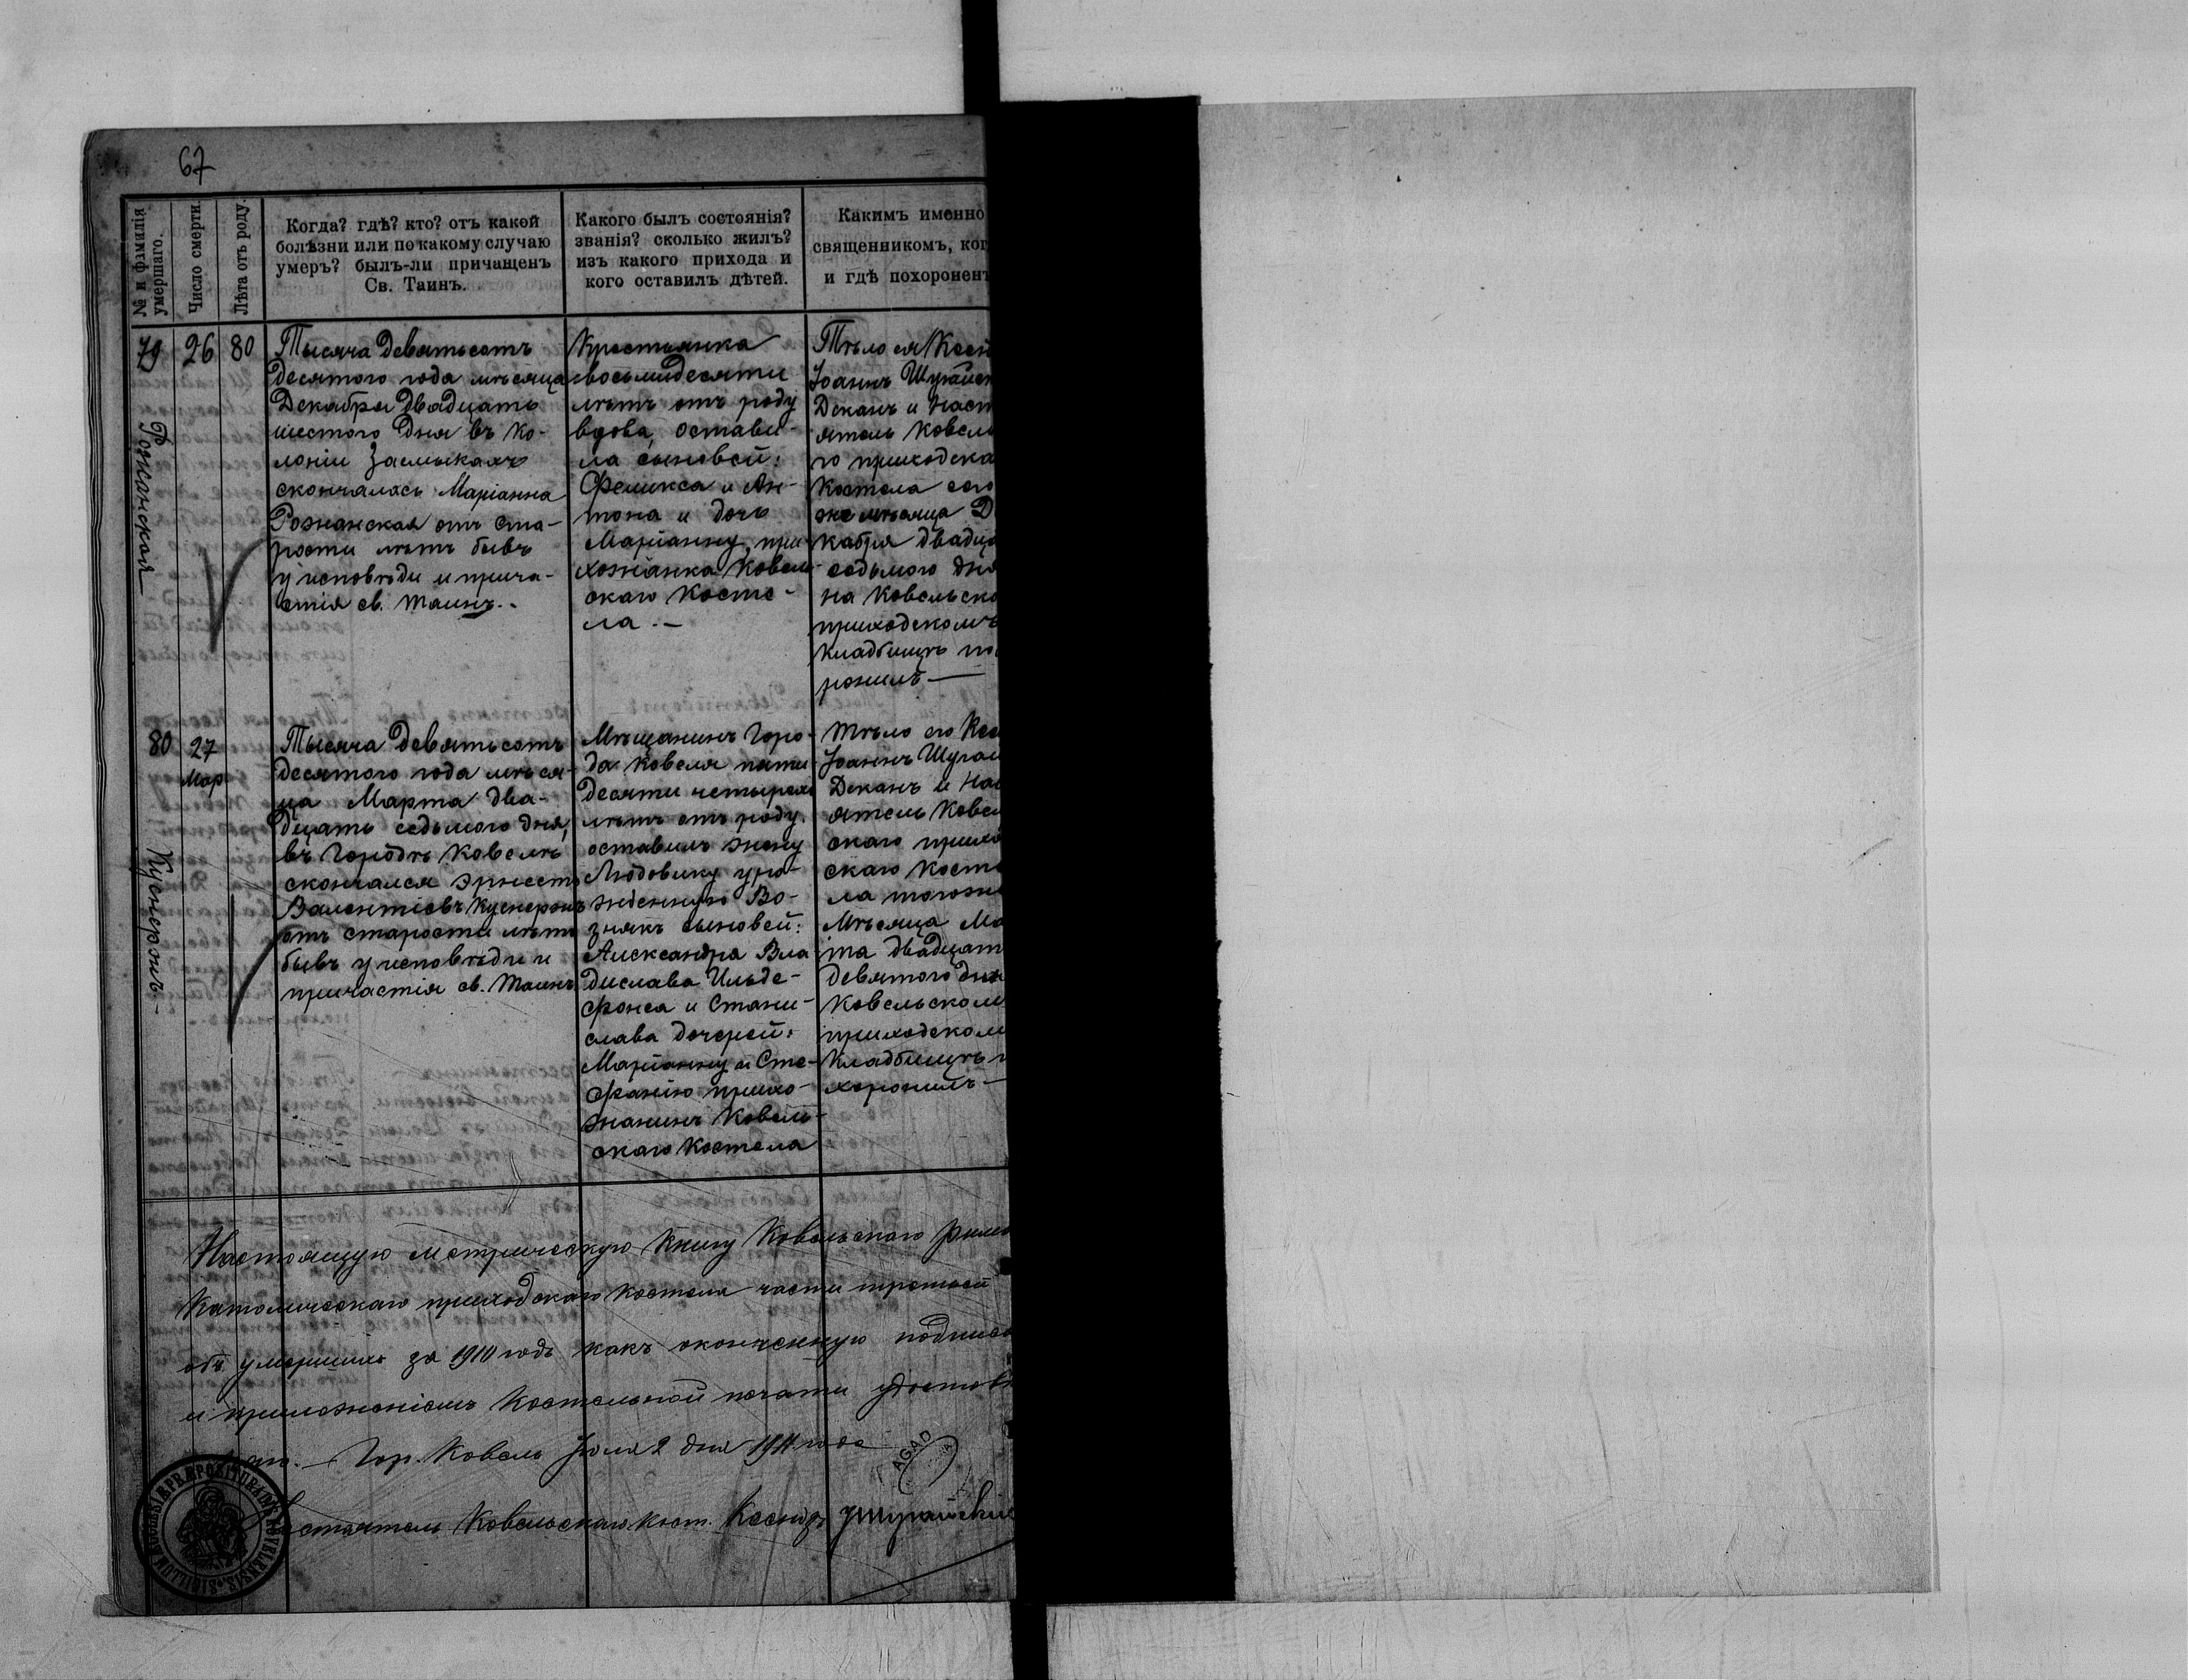 67
№ и фамилія умершаго.
Число смерти.
Лѣта отъ роду.
Когда? гдѣ? кто? отъ какой
болѣзни или по какому случаю
умеръ? былъ-ли причащенъ
Св. Таинъ.
Какого былъ состоянія?
званія? сколько жилъ?
изъ какого прихода и
кого оставилъ дѣтей.
Какимъ именно
священникомъ, ког
и гдѣ похоронен
79
Рожанская
26
80
Тысяча девятьсотъ
десятого года мѣсяца
Декабря двадцать
шестого дня въ ко-
лоніи Засмыкахъ
скончалась Маріанна
Рожанская отъ ста-
рости лѣтъ бывъ
у исповѣди и прича-
стія св. Таинъ.-
Крестьянка
восьмидесяти
лѣтъ отъ роду
вдова, остави-
ла сыновей:
Феликса и Ан-
тона и дочь
Маріанну, при-
хожанка Ковель-
скаго Косте-
ла.-
Тѣло ея Ксен
Іоаннъ
Деканъ и Наст
ятель Ковель
го приходска
Костела сего
же мѣсяца Д
кабря двадца
седьмого дня
на Ковельско
приходскомъ
Кладбищѣ по
ронилъ—
80
27
Мар
Тысяча девятьсотъ
десятого года мѣся-
ца Марта два-
дцать седьмого дня,
въ Городѣ Ковелѣ
скончался Эрнестъ
Валентіевъ
отъ старости лѣтъ
бывъ у исповѣди и
причастія св. Таинъ
Мѣщанинъ Горо-
да Ковеля пяти-
десяти четырехъ
лѣтъ отъ роду.
оставилъ жену
Людовику уро-
жденную Во-
знякъ сыновей:
Александра Вла
дислава Ильде-
фонса и Стани-
слава дочерей:
Маріанну и Сте-
фанію прихо-
жанинъ Ковель-
скаго Костела
Тѣло его Ксе
Іоаннъ
Деканъ и На
ятель Ковел
скаго прихо
скаго Косте
ла тогоже
Мѣсяца Ма
та двадцат
девятого дня
Ковельском
приходском
Кладбищѣ п
хоронилъ—
Настоящую метрическую Книгу Ковельскаго Римо
Католическаго приходскаго Костела части третьей
объ умершихъ за 1910 годъ какъ оконченную подписо
и приложеніемъ Костельной печати удостовѣ
Гор. Ковель Іюля 2 дня 1911 года
AGAD
Настоятель Ковельскаго Кост. Ксендзъ